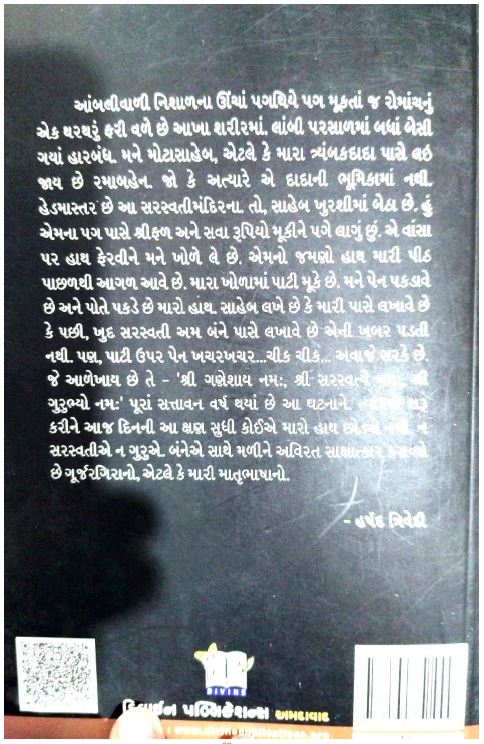 આંબલીવાળી નિશાળના ઊંચાં પગથિયે પગ મૂકતાં જ રોમાંચનું
એક થરથરું ફરી વળે છે આખા શરીરમાં. લાંબી પરસાળમાં બધાં બેસી
ગયાં હારબંધ. મને મોટાસાહેબ, એટલે કે મારા ત્ર્યંબકદાદા પાસે લઇ
જાય છે રમાબહેન. જો કે અત્યારે એ દાદાની ભૂમિકામાં નથી.
હેડમાસ્તર છે આ સરસ્વતીમંદિરના. તો, સાહેબ ખુરશીમાં બેઠા છે. હું
એમના પગ પાસે શ્રીફળ અને સવા રૂપિયો મૂકીને પગે લાગું છું. એ વાંસા
પર હાથ ફેરવીને મને ખોળે લે છે. એમનો જમણો હાથ મારી પીઠ
પાછળથી આગળ આવે છે. મારા ખોળામાં પાટી મૂકે છે. મને પેન પકડાવે
છે અને પોતે પકડે છે મારો હાથ. સાહેબ લખે છે કે મારી પાસે લખાવે છે
કે પછી, ખુદ સરસ્વતી અમ બંને પાસે લખાવે છે એની ખબર પડતી
નથી. પણ, પાટી ઉપર પેન ખચરખચર...ચીક ચીક... અવાજે સરકે છે.
જે આળેખાય છે તે – 'શ્રી ગણેશાય નમઃ, શ્રી સરસ્વત્યૈ નમઃ, શ્રી
ગુરુભ્યો નમઃ' પૂરાં સત્તાવન વર્ષ થયાં છે આ ઘટનાને. ત્યારથી શરૂ
કરીને આજ દિનની આ ક્ષણ સુધી કોઈએ મારો હાથ છોડ્યો નથી. ન
સરસ્વતીએ ન ગુરુએ. બંનેએ સાથે મળીને અવિરત સાક્ષાત્કાર કરાવ્યો
છે ગૂર્જરગિરાનો, એટલે કે મારી માતૃભાષાનો.
– હર્ષદ ત્રિવેદી
DIVINE
ડિવાઈન પબ્લિકેશન્સ અમદાવાદ
www.divinepublications.org